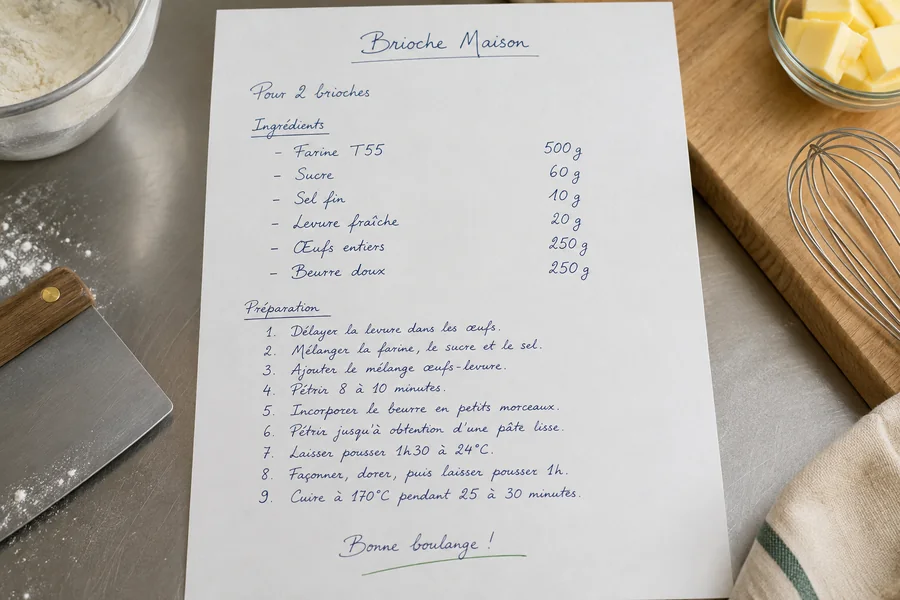 Brioche Maison
Pour 2 brioches
Ingrédients
- Farine T55 500 g
- Sucre 60 g
- Sel fin 10 g
- Levure fraîche 20 g
- Œufs entiers 250 g
- Beurre doux 250 g
Préparation
1. Délayer la levure dans les œufs.
2. Mélanger la farine, le sucre et le sel.
3. Ajouter le mélange œufs-levure.
4. Pétrir 8 à 10 minutes.
5. Incorporer le beurre en petits morceaux.
6. Pétrir jusqu'à obtention d'une pâte lisse.
7. Laisser pousser 1h30 à 24°C.
8. Façonner, dorer, puis laisser pousser 1h.
9. Cuire à 170°C pendant 25 à 30 minutes.
Bonne boulange !